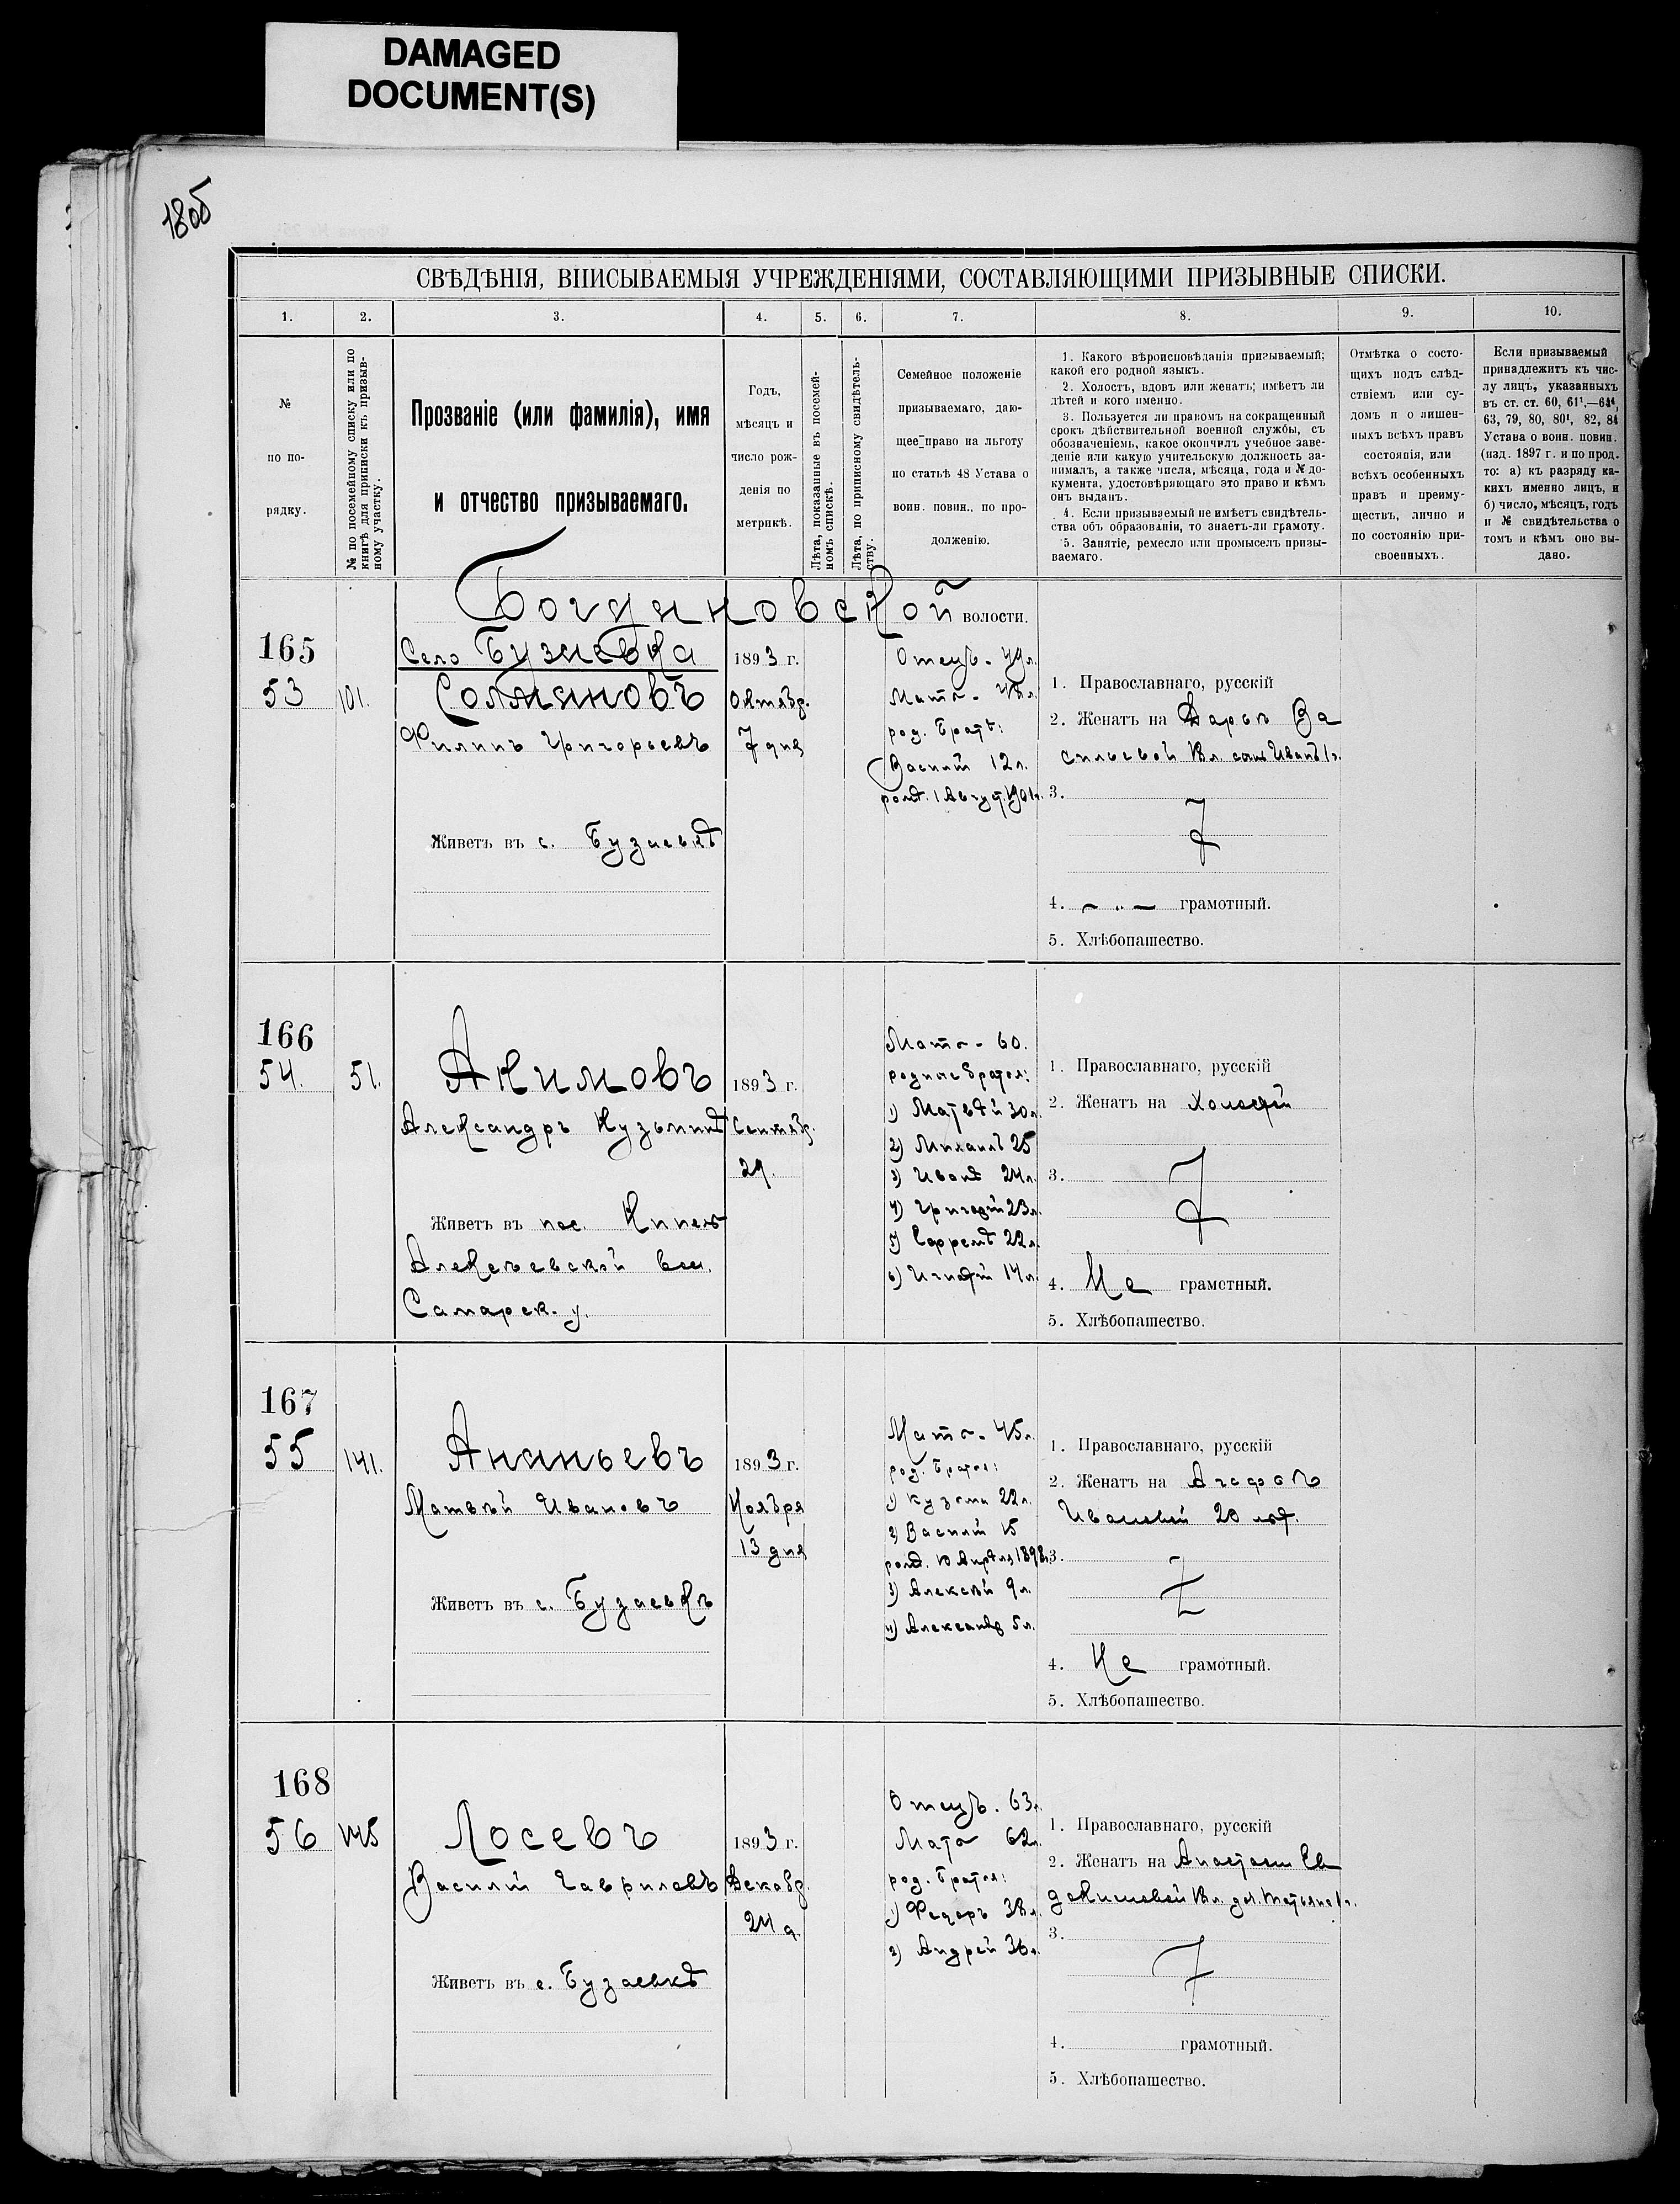 DAMAGED
DOCUMENT(S)
180б
СВѢДѢНІЯ, ВПИСЫВАЕМЫЯ УЧРЕЖДЕНІЯМИ, СОСТАВЛЯЮЩИМИ ПРИЗЫВНЫЕ СПИСКИ.
1. 2. 3. 4. 5. 6. 7. 8. 9. 10.
№
по по-
рядку.
№ по посемейному списку или по
книгѣ для приписки къ призыв-
ному участку.
Прозваніе (или фамилія), имя
и отчество призываемаго.
Годъ,
мѣсяцъ и
число рож-
денія по
метрикѣ.
Лѣта, показанные въ посемей-
номъ спискѣ.
Лѣта, по приписному свидѣтель-
ству.
Семейное положеніе
призываемаго, даю-
щее право на льготу
по статьѣ 48 Устава о
воин. повин., по про-
долженію.
1. Какого вѣроисповѣданія призываемый;
какой его родной языкъ.
2. Холостъ, вдовъ или женатъ; имѣетъ ли
дѣтей и кого именно.
3. Пользуется ли правомъ на сокращенный
срокъ дѣйствительной военной службы, съ
обозначеніемъ, какое окончилъ учебное заве-
деніе или какую учительскую должность за-
нималъ, а также числа, мѣсяца, года и № до-
кумента, удостовѣряющаго это право и кѣмъ
онъ выданъ.
4. Если призываемый не имѣетъ свидѣтель-
ства объ образованіи, то знаетъ-ли грамоту.
5. Занятіе, ремесло или промыселъ призы-
ваемаго.
Отмѣтка о состо-
ящихъ подъ слѣд-
ствіемъ или су-
домъ и о лишен-
ныхъ всѣхъ правъ
состоянія, или
всѣхъ особенныхъ
правъ и преиму-
ществъ, лично и
по состоянію при-
своенныхъ.
Если призываемый
принадлежитъ къ чис-
лу лицъ, указанныхъ
въ ст. ст. 60, 61¹,—64⁴,
63, 79, 80, 80¹, 82, 84
Устава о воин. повин.
(изд. 1897 г. и по прод.
то: а) къ разряду ка-
кихъ именно лицъ, и
б) число, мѣсяцъ, годъ
и № свидѣтельства о
томъ и кѣмъ оно вы-
дано.
Богдановской волости.
165
53
101.
Село Бузаевка
Солмановъ
Филипъ Григорьевъ
Живетъ въ с. Бузаевкѣ
1893 г.
Октябр.
7 дня
Отецъ - 49 л.
Мать -
род. братъ:
Василій 12 л.
рожд. 1 Август. 1901 г.
1. Православнаго, русскій
2. Женатъ на Дарьѣ Ва
сильевой 18 л. сынъ Иванъ 1 г.
3.
4. грамотный.
5. Хлѣбопашество.
166
54.
51.
Акимовъ
Александръ Кузьминъ
Живетъ въ пос. Кинель
Алексѣевской вол.
Самарск. у.
1893 г.
Сентяб.
29.
Мать - 60.
родные братья:
1) Матвѣй 30 л.
2) Михаилъ 25
3) Иванъ 24 л.
4) Григорій 23 л.
5) Ефремъ 22 л.
6) Игнатій 14 л.
1. Православнаго, русскій
2. Женатъ на Холостой
3.
4. Не грамотный.
5. Хлѣбопашество.
167
55
141.
Ананьевъ
Матвѣй Ивановъ
Живетъ въ с. Бузаевкѣ
1893 г.
Ноября
13 дня
Мать - 45 л.
род. братья:
1) Кузьма 22 л.
2) Василій 15
рожд. 10 Апрѣля 1898 г.
3) Алексѣй 9 л.
4) Александр 5 л.
1. Православнаго, русскій
2. Женатъ на Агафьѣ
Ивановой 20 лѣт.
3.
4. Не грамотный.
5. Хлѣбопашество.
168
56
145
Лосевъ
Василій Гавриловъ
Живетъ въ с. Бузаевкѣ
1893 г.
Декабр.
24 д.
Отецъ. 63 л.
Мать 62 л.
род. братья:
1) Федоръ 38 л.
2) Андрей 36 л.
1. Православнаго, русскій
2. Женатъ на Анастасіи Ев
докимовой 18 л. доч. Татьяна 1 г.
3.
4. грамотный.
5. Хлѣбопашество.